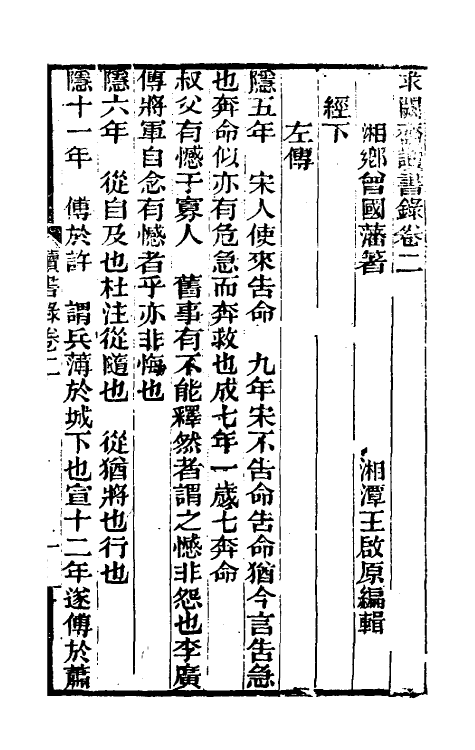 求闕齋讀書錄卷二
湘鄉曾國藩著　湘潭王啟原編輯
經下
左傳
隱五年　宋人使來告命　九年宋不告命告命猶今言告急
也奔命似亦有危急而奔救也成七年一歲七奔命
叔父有憾于寡人　舊事有不能釋然者謂之憾非怨也李廣
傳將軍自念有憾者乎亦非悔也
隱六年　從自及也杜注從隨也　從猶將也行也
隱十一年　傅於許　謂兵薄於城下也宣十二年遂傅於蕭
讀書錄卷二　一